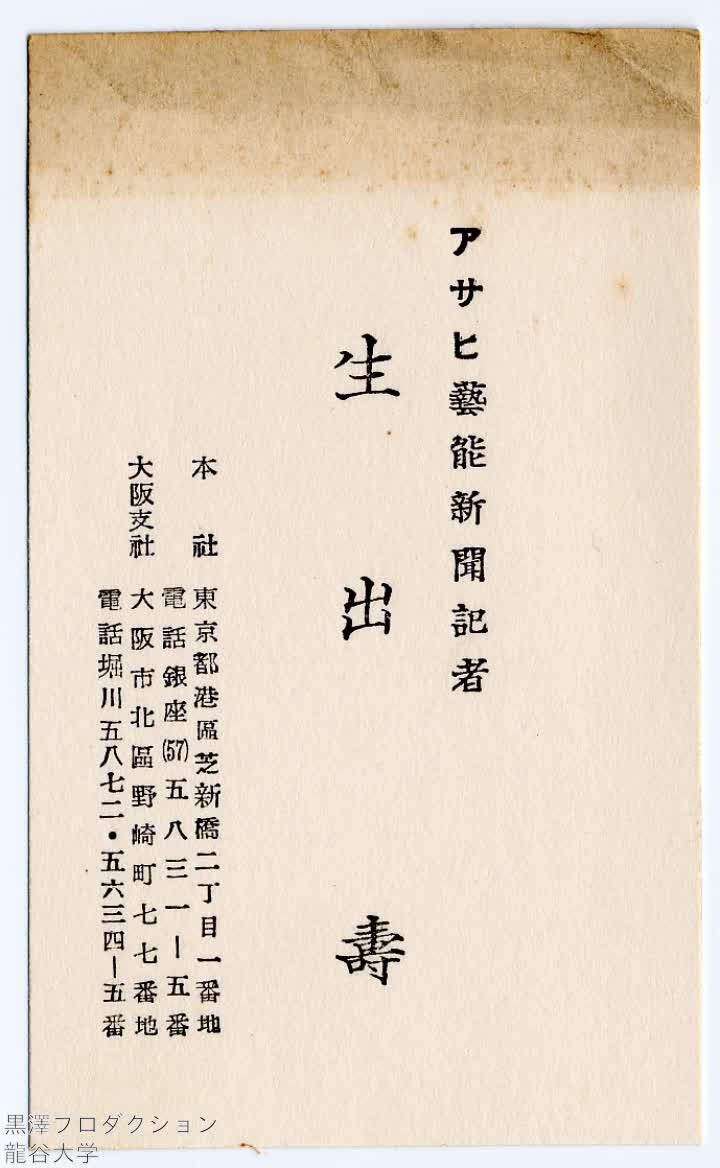 アサヒ藝能新聞記者
生出壽
本社 東京都港區芝新橋二丁目一番地
電話銀座(57)五八三一―五番
大阪支社 大阪市北區野崎町七七番地
電話堀川五八七二・五六三四―五番
黒澤プロダクション
龍谷大学